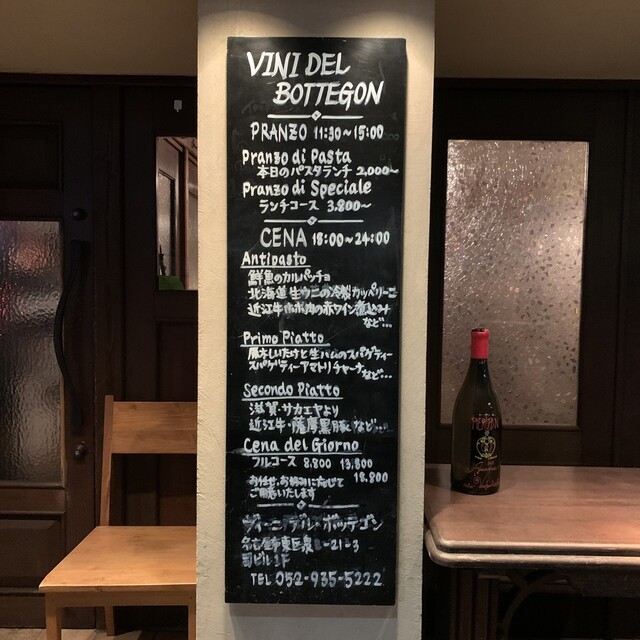 VINI DEL
BOTTEGON
PRANZO 11:30~15:00
Pranzo di Pasta
本日のパスタランチ 2,000~
Pranzo di Speciale
ランチコース 3.800~
CENA 18:00~24:00
Antipasto
鮮魚のカルパッチョ
北海道生ウニの冷製カッペリーニ
近江牛ホホ肉の赤ワイン煮込み
など...
Primo Piatto
原木しいたけと生ハムのスパゲティー
スパゲティーアマトリチャーナ
など...
Secondo Piatto
滋賀・サカエヤより
近江牛・薩摩黒豚 など...
Cena del Giorno
フルコース 8.800 13,800
18.800
お任せ、お好みに応じて
ご用意いたします
ヴィーニ デル・ボッテゴン
名古屋市東区泉 -21-3
ビル1F
TEL 052-935-5222